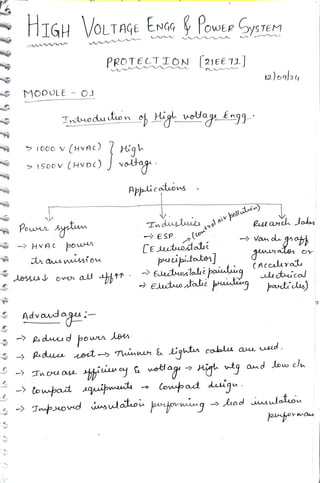 HIGH VOLTAGE ENGG & POWER SYSTEM
PROTECTION [21EE71]
12/09/24
MODULE - 01
Introduction of High voltage Engg.
> 1000 V (HVAC) } High
> 1500V (HVDC) } voltage.
Applications -
Power system
→ HVAC power
transmission
losses↓ over all eff↑↑.
Industries
→ ESP → (control air pollution)
[Electrostatic
precipitator]
→ Electrostatic painting
→ Electrostatic printing
Research labs
→ Van de graff
generator or
(Accelerate
electrical
particles)
Advantages :-
→ Reduced power loss
→ Reduce cost → Thinner & lighter cables are used.
→ Increase efficiency & voltage → High vtg and low c/n
→ Compact equipments → Compact design.
→ Improved insulation performing → lead insulation
performan